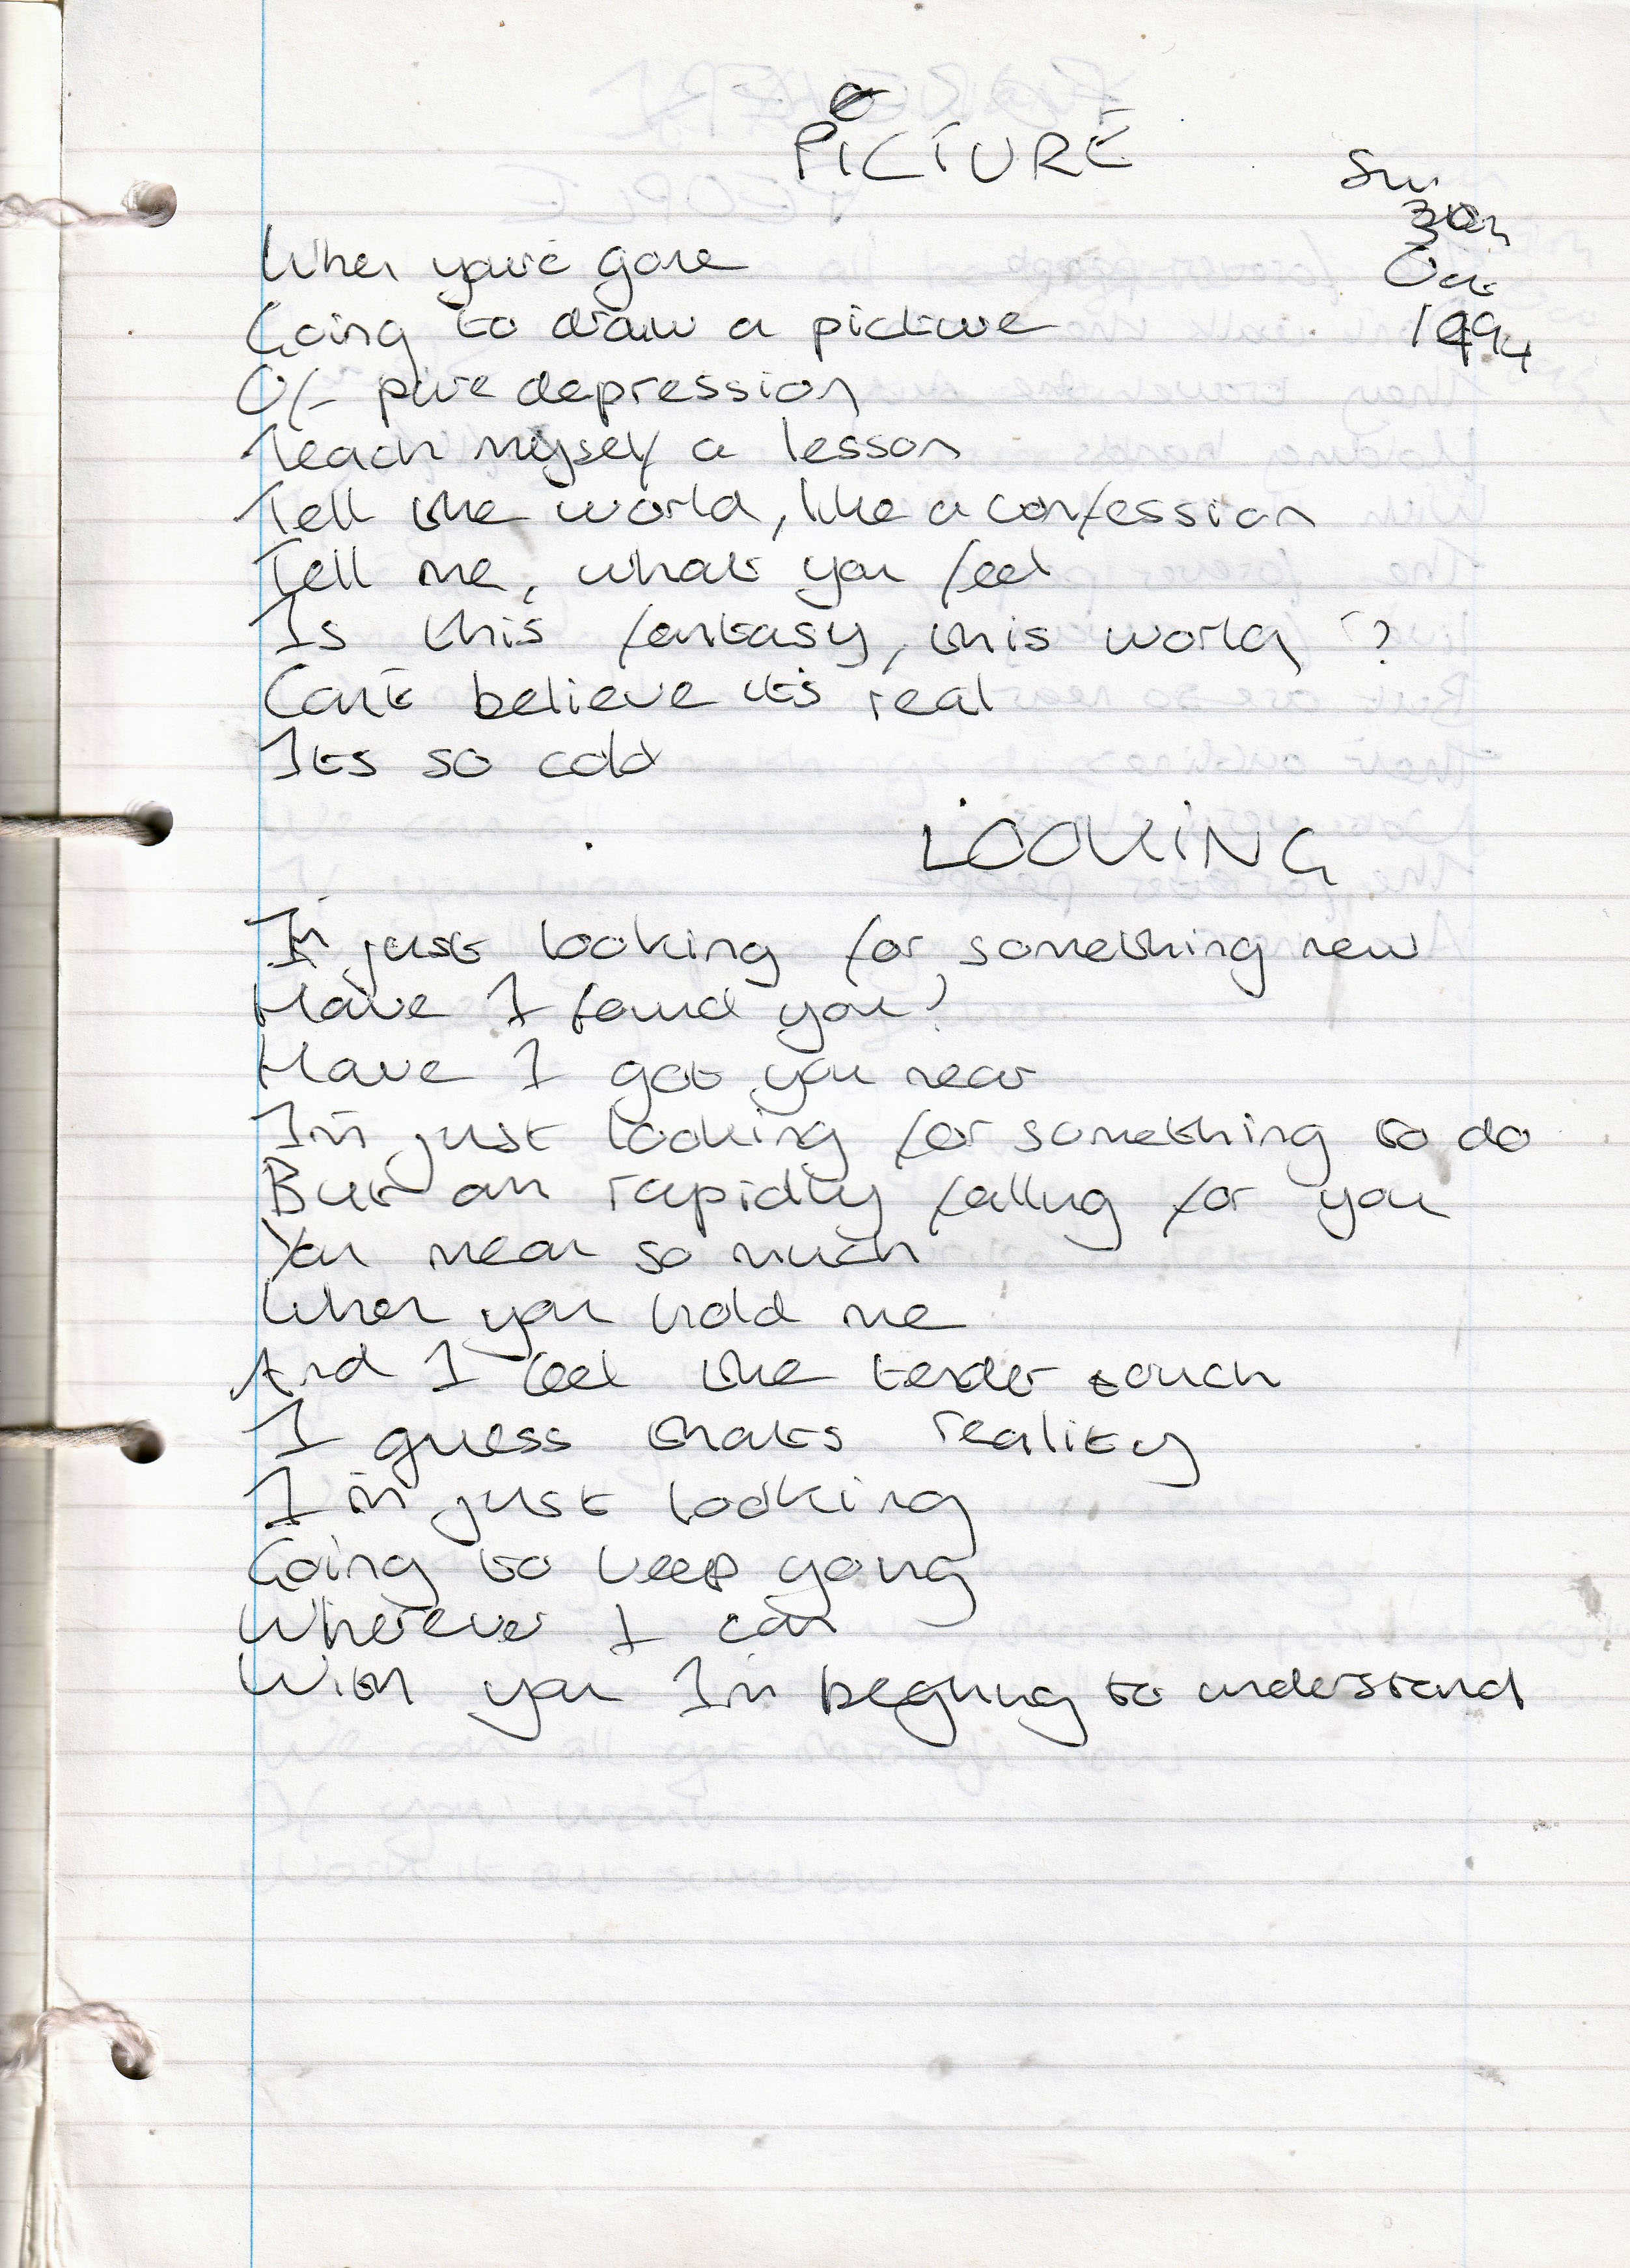 PICTURE
Sun
30th
Oct
1994
When you're gone
Going to draw a picture
Of pure depression
Teach myself a lesson
Tell the world, like a confession
Tell me, what you feel
Is this fantasy, this world ?
Can't believe it's real
Its so cold
LOOKING
I'm just looking for something new
Have I found you?
Have I got you near
I'm just looking for something to do
But am rapidly falling for you
You mean so much
When you hold me
And I feel the tender touch
I guess thats reality
I'm just looking
Going to keep going
Wherever I can
With you I'm begining to understand